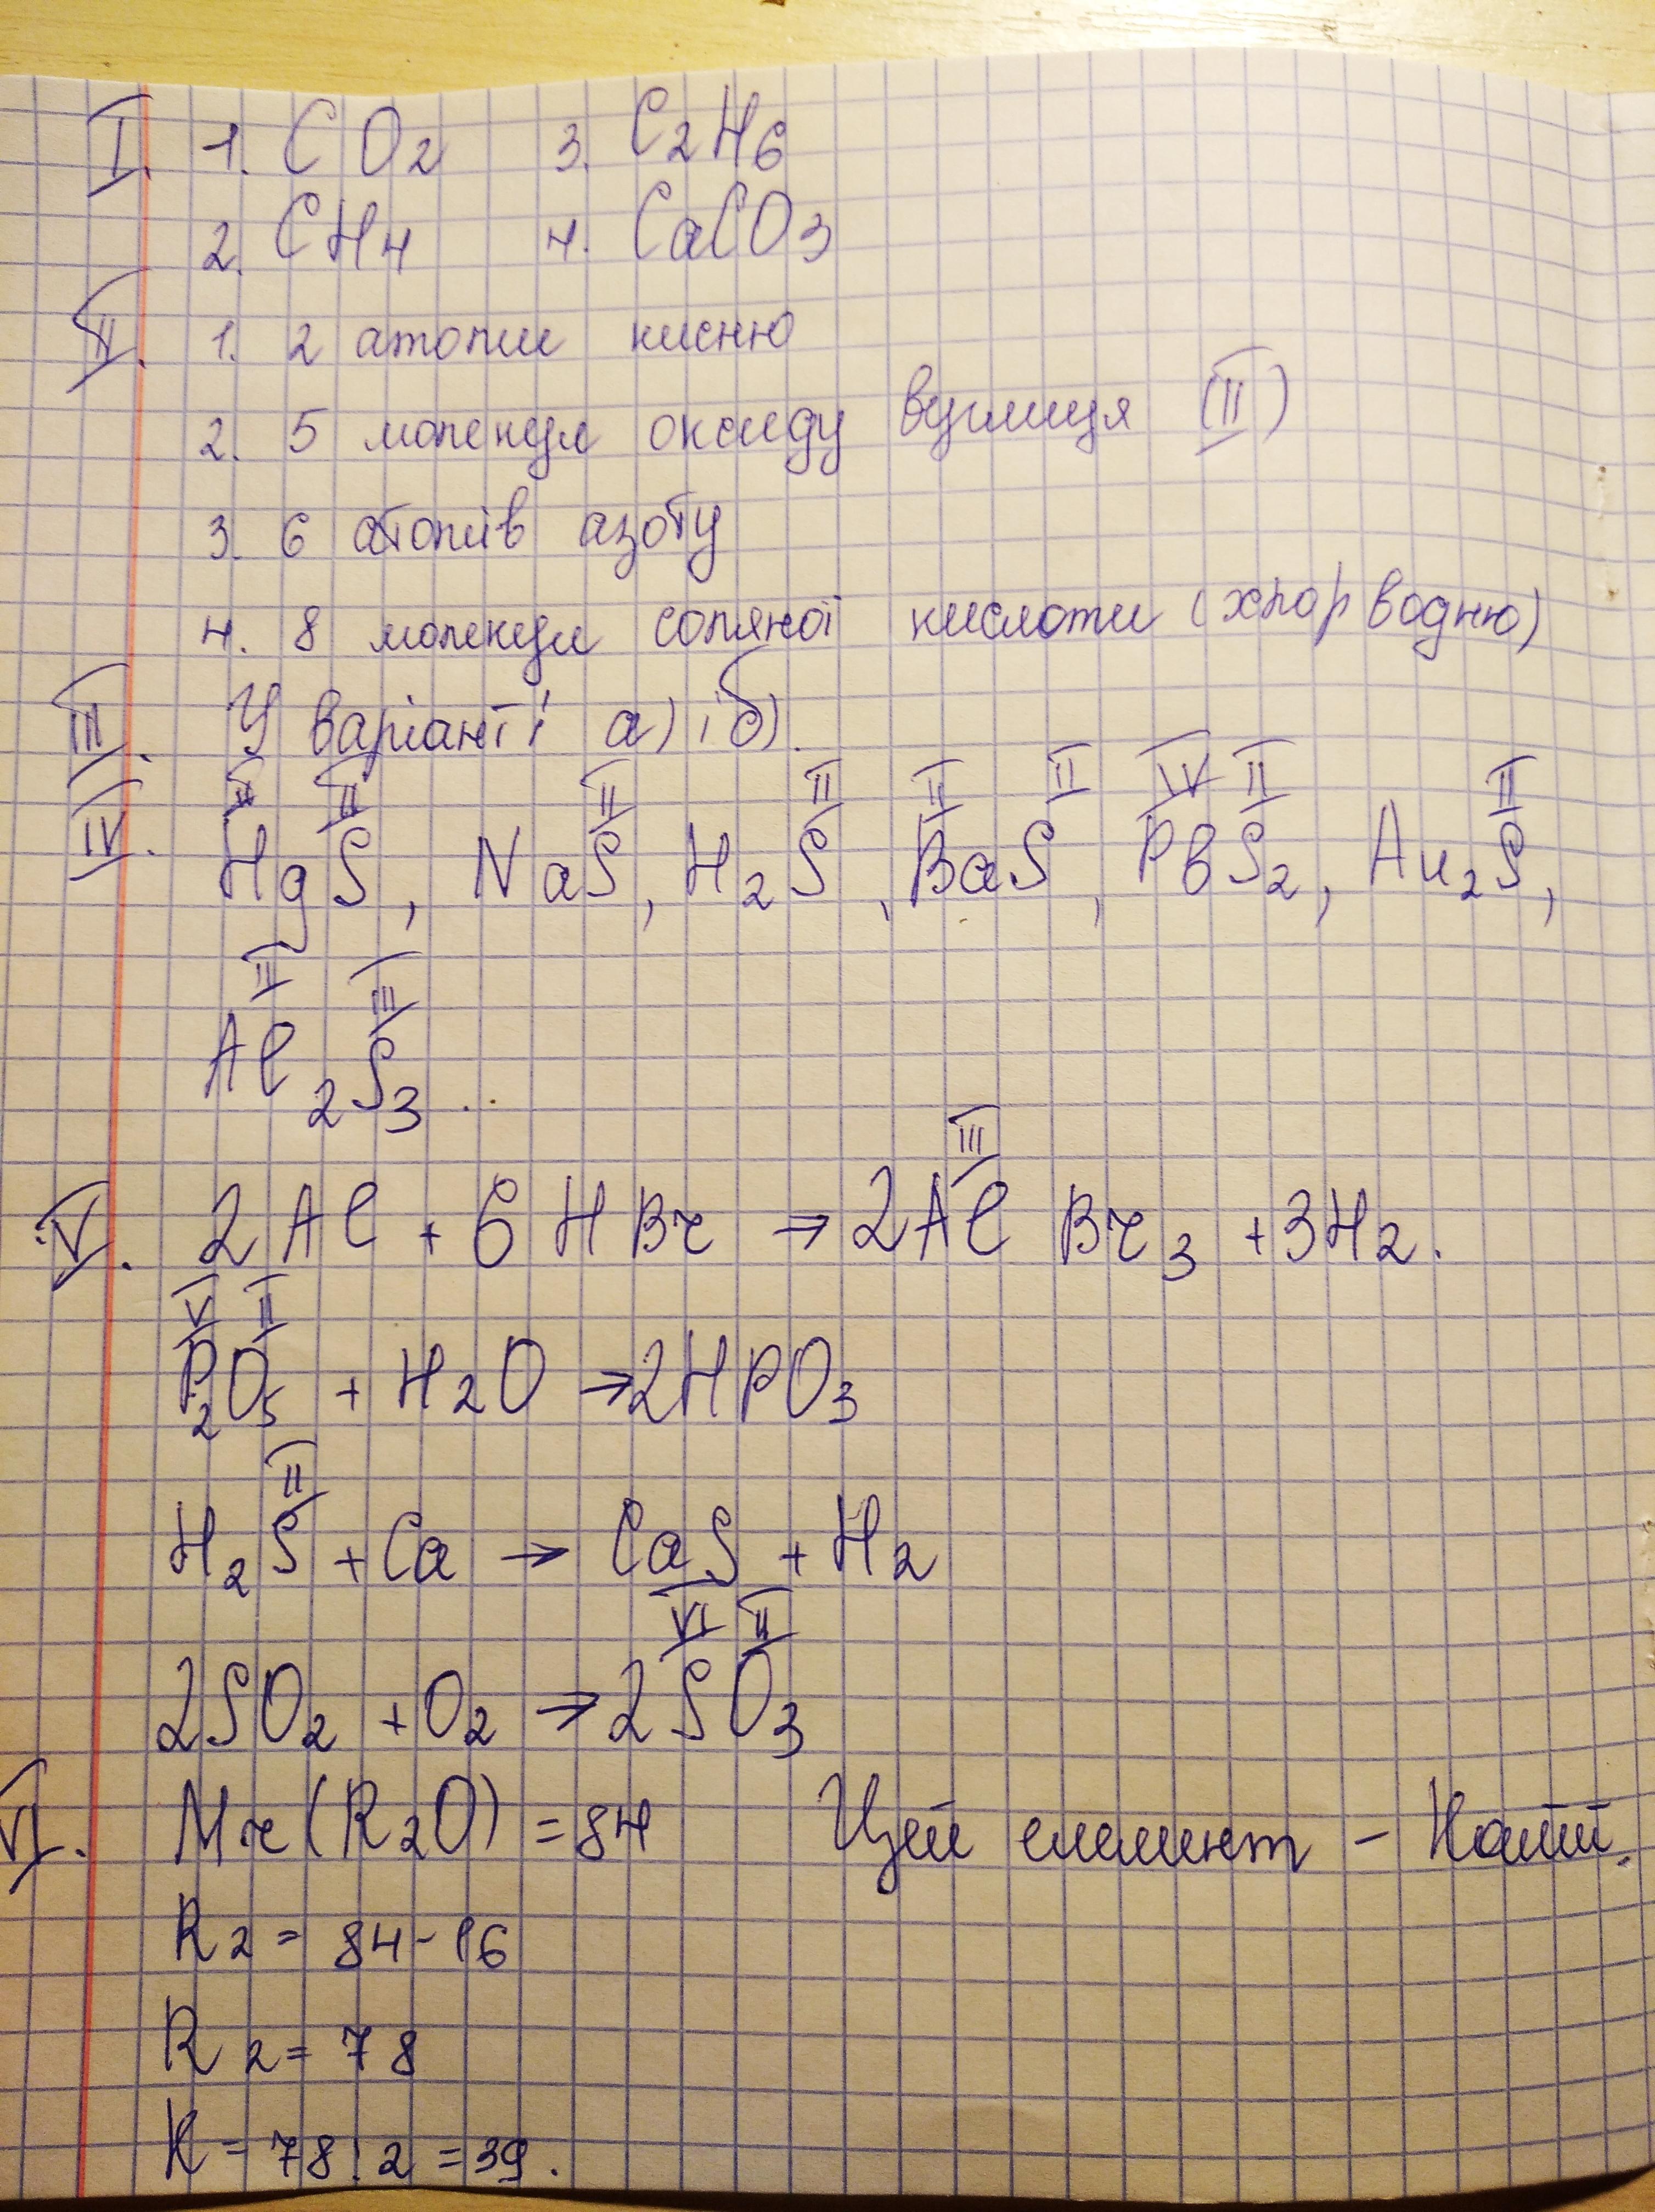 I. 1. CO2 3. C2H6
2. CH4 4. CaCO3
II. 1. 2 атоми кисню
2. 5 молекул оксиду вуглиця (II)
3. 6 атомів азоту
4. 8 молекул соляної кислоти (хлорводню)
III. У варіанті а) і б).
II II II II II II IV II II
IV. HgS, NaS, H2S, BaS, PbS2, Au2S,
II III
Al2S3...
III
V. 2Al + 6HBr → 2AlBr3 + 3H2.
V II
P2O5 + H2O → 2HPO3
II
H2S + Ca → CaS + H2
VI II
2SO2 + O2 → 2SO3
VI. Mr(R2O) = 84 Цей елемент – Калій.
R2 = 84-16
R2 = 78
K = 78:2 = 39.